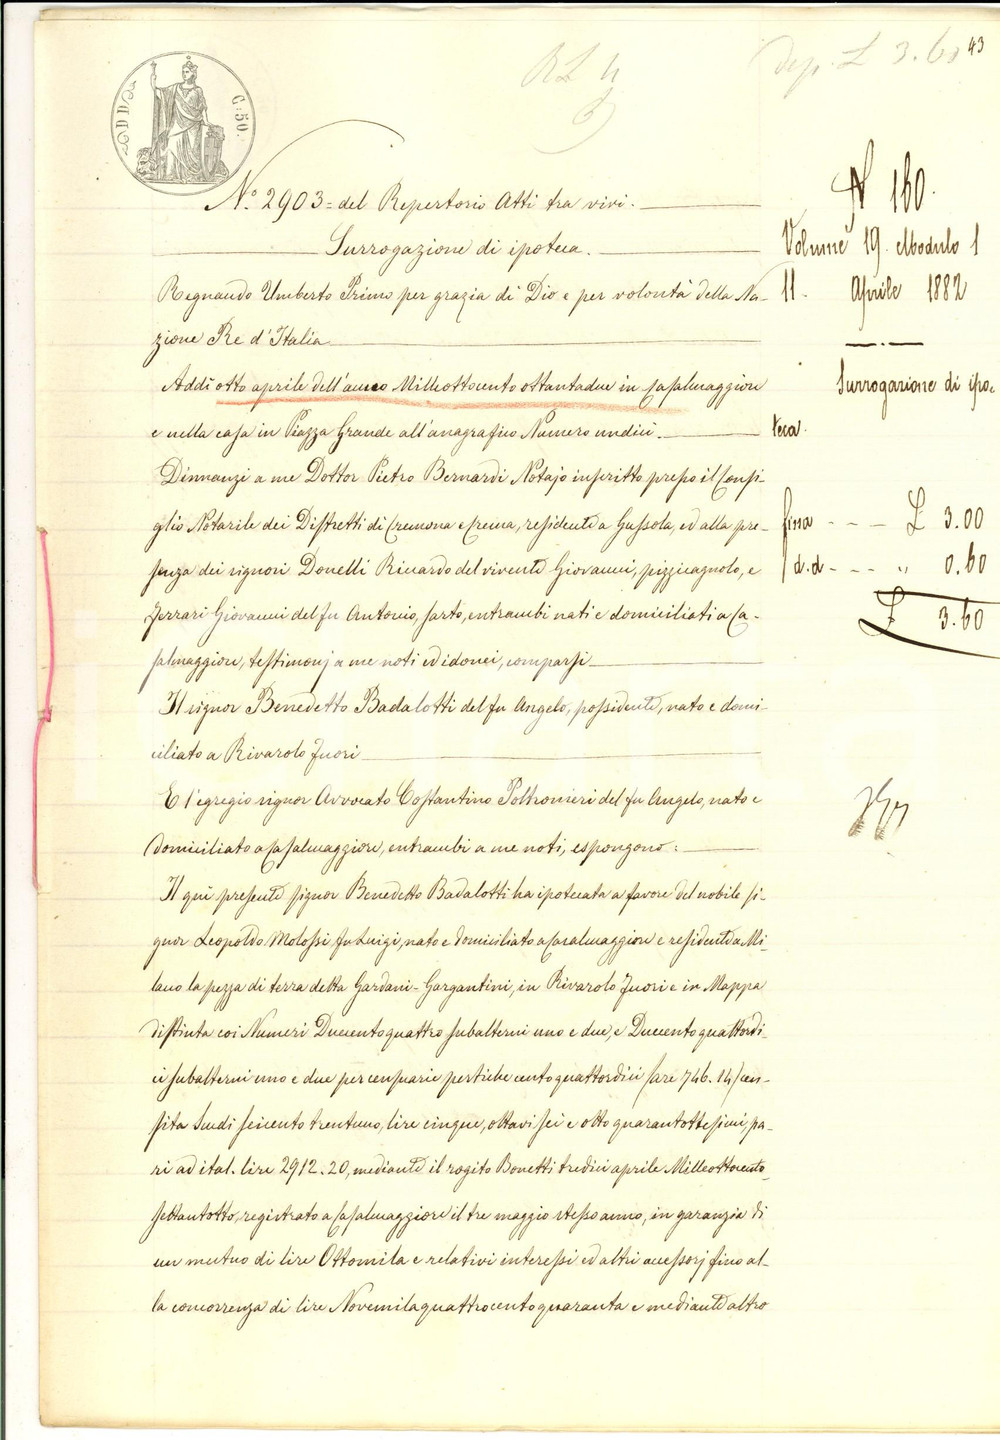 43
dep. L 3.60
DD
C: 50.
N.º 2903= del Repertorio Atti tra vivi.
Surrogazione di ipoteca.
Regnando Umberto Primo per grazia di Dio e per volontà della Na-
zione Re d'Italia
Addì otto aprile dell'anno Milleottocento ottantadue in Casalmaggiore
e nella casa in Piazza Grande all'anagrafico Numero undici.
Dinnanzi a me Dottor Pietro Bernardi Notajo inscritto presso il Consi-
glio Notarile dei Distretti di Cremona e Crema, residente a Gussola, ed alla pre-
senza dei signori Donelli Riccardo del vivente Giovanni, pizzicagnolo, e
Ferrari Giovanni del fu Antonio, sarto, entrambi nati e domiciliati a Ca-
salmaggiore, testimonj a me noti ed idonei, comparsi
Il signor Benedetto Badalotti del fu Angelo, possidente, nato e domi-
ciliato a Rivarolo Fuori
E l'egregio signor Avvocato Costantino Poltronieri del fu Angelo, nato e
domiciliato a Casalmaggiore, entrambi a me noti, espongono:
Il qui presente signor Benedetto Badalotti ha ipotecata a favore del nobile si-
gnor Leopoldo Molossi fu Luigi, nato e domiciliato a Casalmaggiore e residente a Mi-
lano la pezza di terra detta Gardani-Gargantini, in Rivarolo Fuori e in Mappa
distinta coi Numeri Duecentoquattro subalterni uno e due, e Duecentoquattordi-
ci subalterni uno e due per censuarie pertiche centoquattordici (are 746.14) cen-
sita Scudi seicento trentuno, lire cinque, ottavi sei e otto quarantottesimi, pa-
ri ad ital. lire 2912.20, mediante il rogito Bonetti tredici aprile Milleottocento-
settantotto, registrato a Casalmaggiore il tre maggio stesso anno, in garanzia di
un mutuo di lire Ottomila e relativi interessi ed altri accessorj fino al-
la concorrenza di lire Novemilaquattrocentoquaranta e mediante altro
N 160.
Volume 19. Modulo 1
11. Aprile 1882
Surrogazione di ipo-
teca.
fissa - - - £ 3.00
d.d - - - " 0.60
£ 3.60